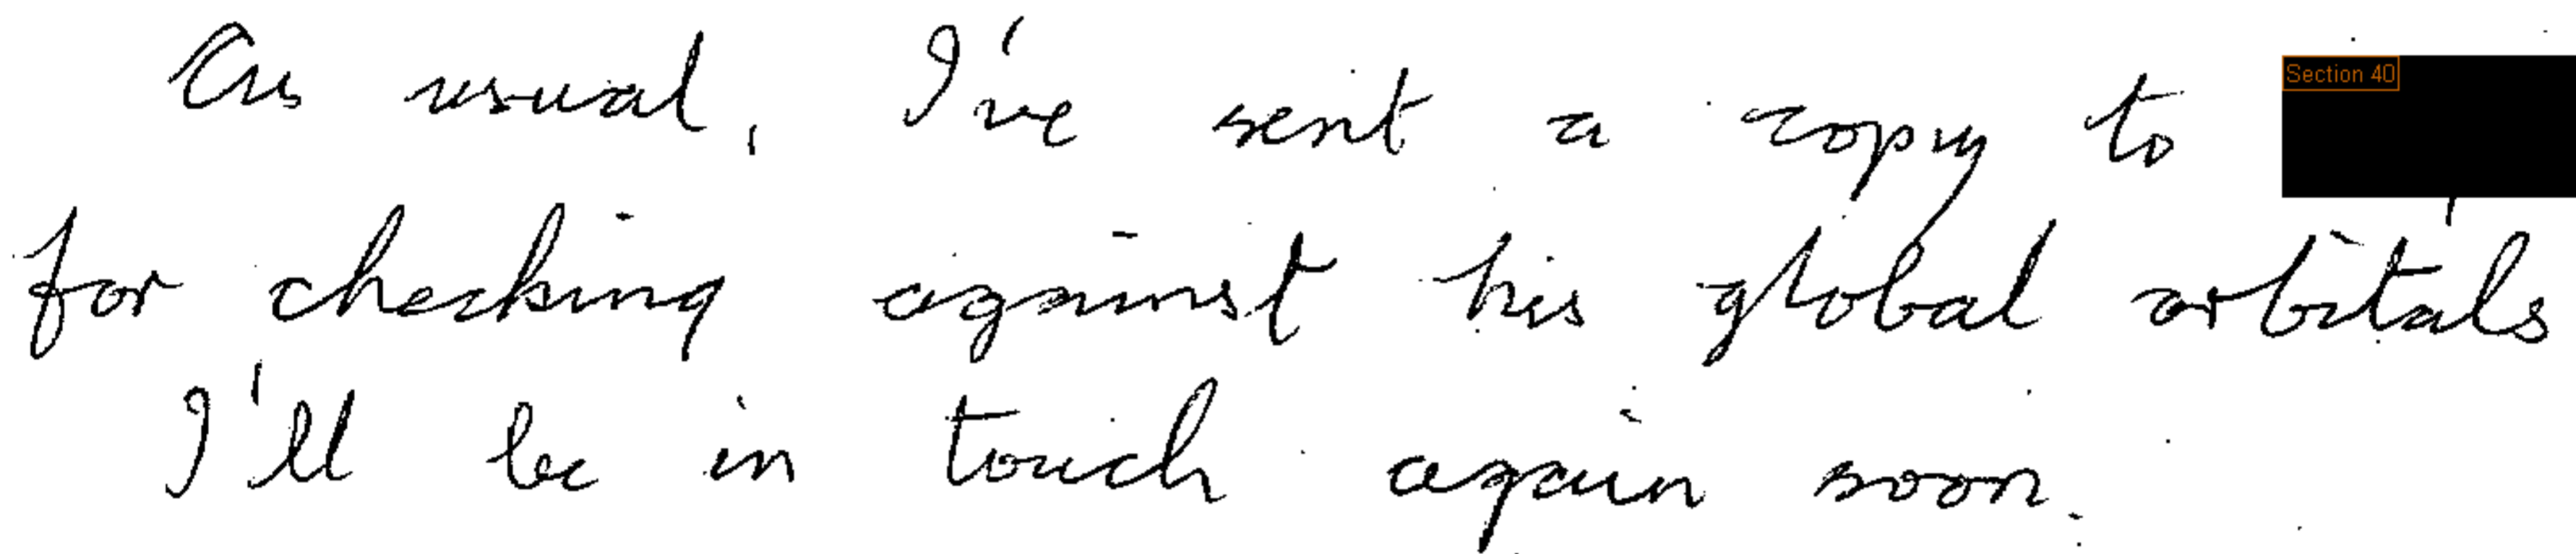 As usual, I've sent a copy to Section 40
for checking against his global orbitals
I'll be in touch again soon.